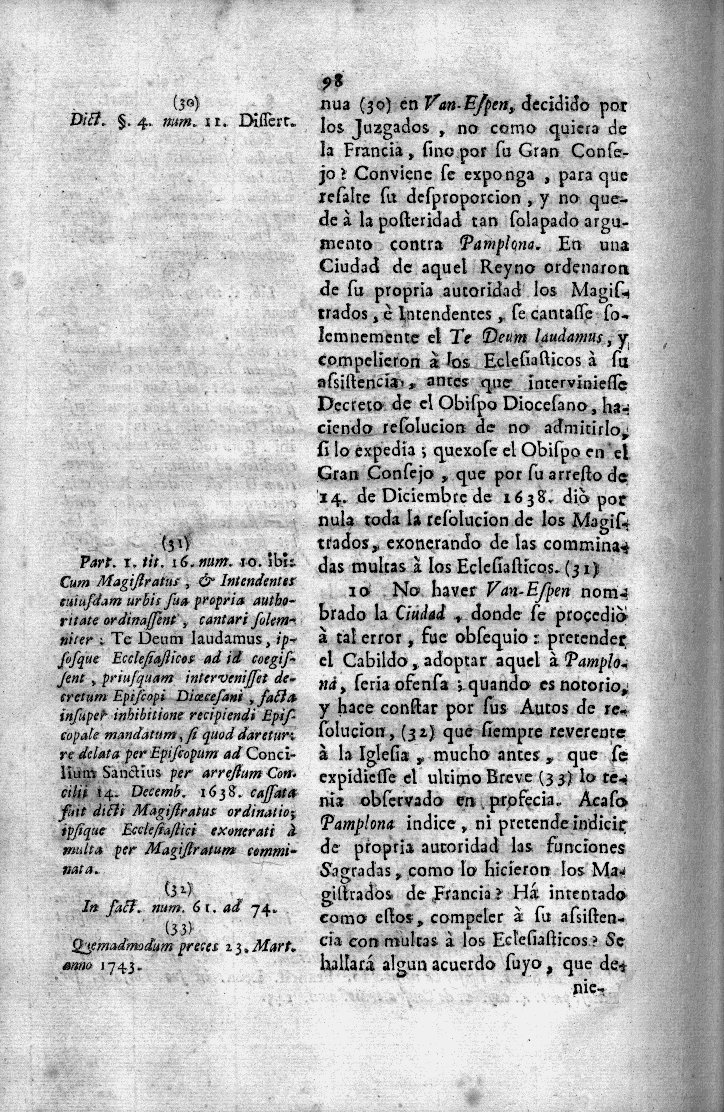 98
(30)
Dict. §. 4. num. 11. Dissert.
nua (30) en Van-Espen, decidido por
los Juzgados , no como quiera de
la Francia, sino por su Gran Conse-
jo? Conviene se exponga , para que
resalte su desproporcion , y no que-
de à la posteridad tan solapado argu-
mento contra Pamplona. En una
Ciudad de aquel Reyno ordenaron
de su propria autoridad los Magis-
trados, è Intendentes , se cantasse so-
lemnemente el Te Deum laudamus, y
compelieron à los Eclesiasticos à su
assistencia, antes que interviniesse
Decreto de el Obispo Diocesano, ha-
ciendo resolucion de no admitirlo,
si lo expedia ; quexose el Obispo en el
Gran Consejo , que por su arresto de
14. de Diciembre de 1638. diò por
nula toda la resolucion de los Magis-
trados, exonerando de las commina-
das multas à los Eclesiasticos. (31)
10 No haver Van-Espen nom-
brado la Ciudad , donde se procediò
à tal error, fue obsequio : pretender
el Cabildo, adoptar aquel à Pamplo-
na, seria ofensa ; quando es notorio,
y hace constar por sus Autos de re-
solucion, (32) que siempre reverente
à la Iglesia , mucho antes , que se
expidiesse el ultimo Breve (33) lo te-
nia observado en profecia. Acaso
Pamplona indice, ni pretende indicir
de propria autoridad las funciones
Sagradas, como lo hicieron los Ma-
gistrados de Francia? Há intentado
como estos, compeler à su asisten-
cia con multas à los Eclesiasticos? Se
hallará algun acuerdo suyo, que de-
nie-
(31)
Part. 1. tit. 16. num. 10. ibi:
Cum Magistratus, & Intendentes
cuiusdam urbis sua propria autho-
ritate ordinassent, cantari solem-
niter : Te Deum laudamus, ip-
sosque Ecclesiasticos ad id coegis-
sent , priusquam intervenisset de-
cretum Episcopi Diœcesani , facta
insuper inhibitione recipiendi Epis-
copale mandatum, si quod daretur;
re delata per Episcopum ad Conci-
lium Sanctius per arrestum Con-
cilii 14. Decemb. 1638. cassata
fuit dicti Magistratus ordinatio;
ipsique Ecclesiastici exonerati à
multa per Magistratum commi-
nata.
(32)
In fact. num. 61. ad 74.
(33)
Quemadmodum preces 23. Mart.
anno 1743.